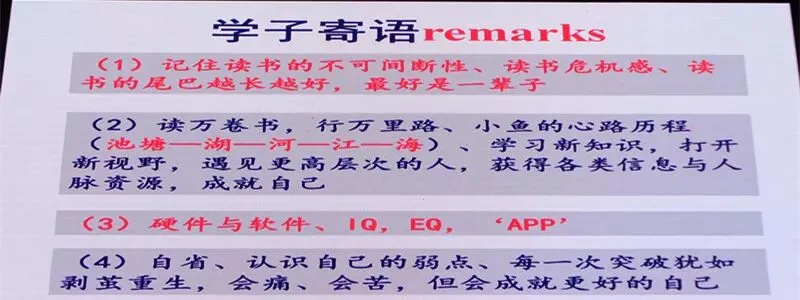 学子寄语remarks
（1）记住读书的不可间断性、读书危机感、读
书的尾巴越长越好，最好是一辈子
（2）读万卷书，行万里路、小鱼的心路历程
（池塘—湖—河—江—海）、学习新知识，打开
新视野，遇见更高层次的人，获得各类信息与人
脉资源，成就自己
（3）硬件与软件、IQ，EQ，‘APP’
（4）自省、认识自己的弱点、每一次突破犹如
剥茧重生，会痛、会苦，但会成就更好的自己